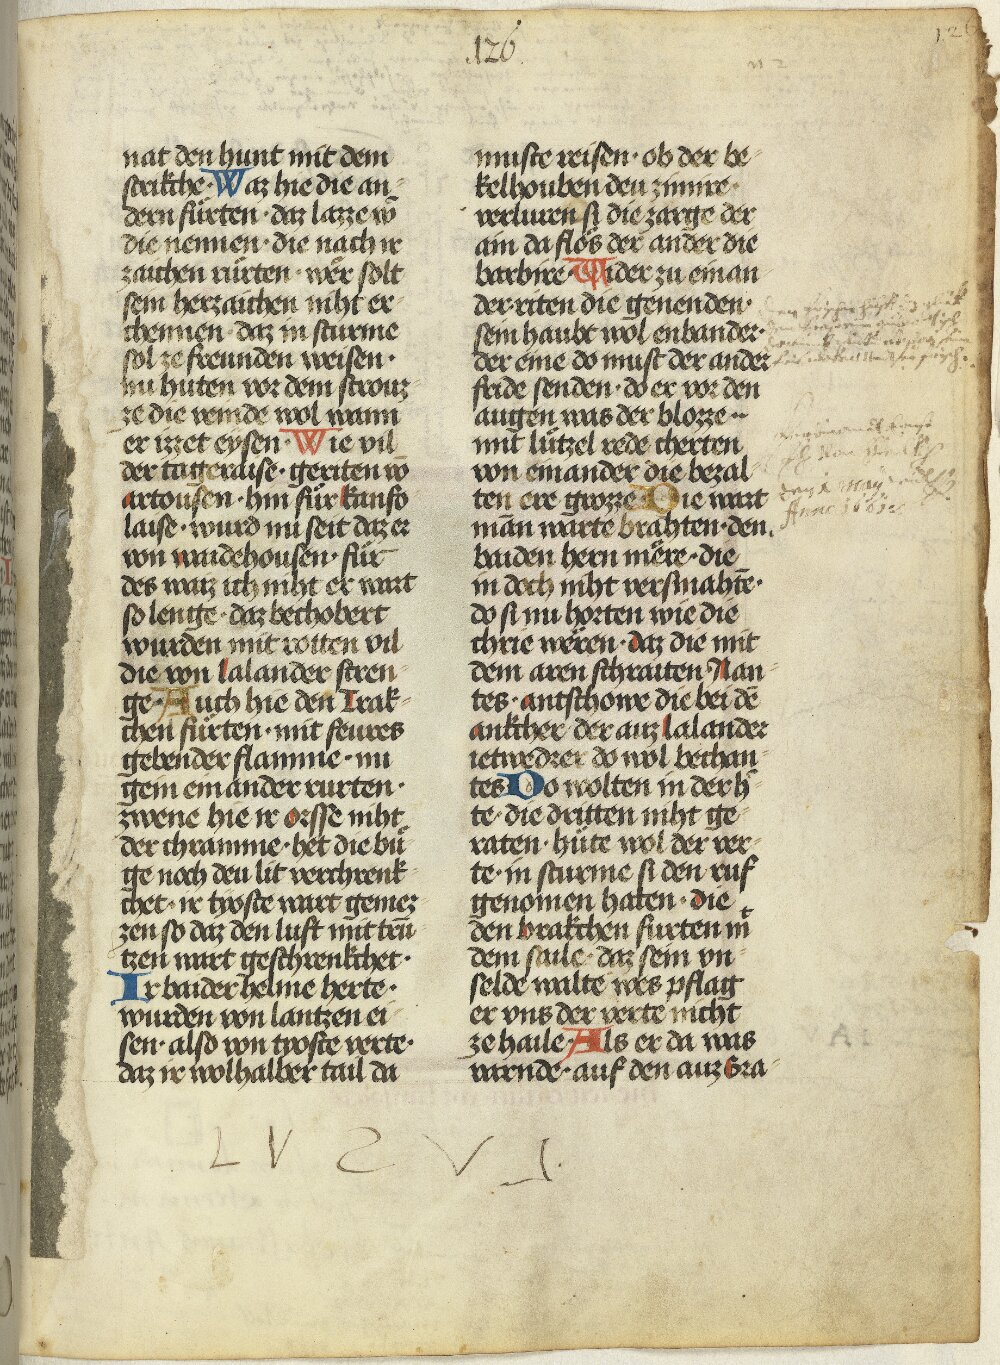 126
nat den hunt mit dem
strikche · Waz hie die an-
dern fu̍rten · daz lazze w̄
die nennen · die nach ir
zaichen ru̍rten · wër solt
sein herzaichen niht er-
chennen · daz in sturme
sol ze freunden weisen ·
nu huten vor dem strouz-
ze die veinde wol wann
er izzet eysen · Wie vil
der tageraise · geriten vō
artousen · hin fu̍r kanfo
laise · wurd mi seit daz er
von waidehousen · fu̍r
des waz ich niht er wart
so lenge · daz bechobert
wurden mit rotten vil
die von lalander stren-
ge · Auch hie den Trak-
chen fu̍rten · mit feures
gebender flamme · nu
gein ein ander rurten ·
zwene hie ir orsse niht
der chramme · het die bu̍-
ge noch deu lit verchrenk-
chet · ir tyoste wart gemez-
zen so daz den luft mit trū-
tzen wart geschrenkchet ·
Ir baider helme herte ·
wurden von lantzen ei-
sen · also von tyoste verte ·
daz ir wolhalber tail da
muste reisen · ob der be-
kelhouben deu zimire ·
verluren si die zarge der
ain da flo̍s der ander die
barbire · Wider zu ein an
der riten die genenden ·
sein haubt wol enbander ·
der eine do must der ander
fride senden · do er vor den
augen was der blozze ··
mit lu̍tzel rede cherten
von ein ander die bezal-
ten ere grozze · Die wart
man warte brahten · den
baiden hern mëre · die
in doch niht versmahtē ·
do si nu horten wie die
chrie wëren · daz die mit
dem aren schraiten Nan-
tes · antschowe die bei dē
ankcher der auz lalander
ietwedrer do wol bechan-
tes Do wolten in der h-
te · die dritten niht ge-
raten · hu̍te wol der ver-
te · in sturme si den ruf
genomen haten · die
den brakchen furten mit
dem saile · daz sein vn-
selde walte wes pflag
er vns der verte nicht
ze haile · Als er da was
varnde · auf den auz Gra-
Anno